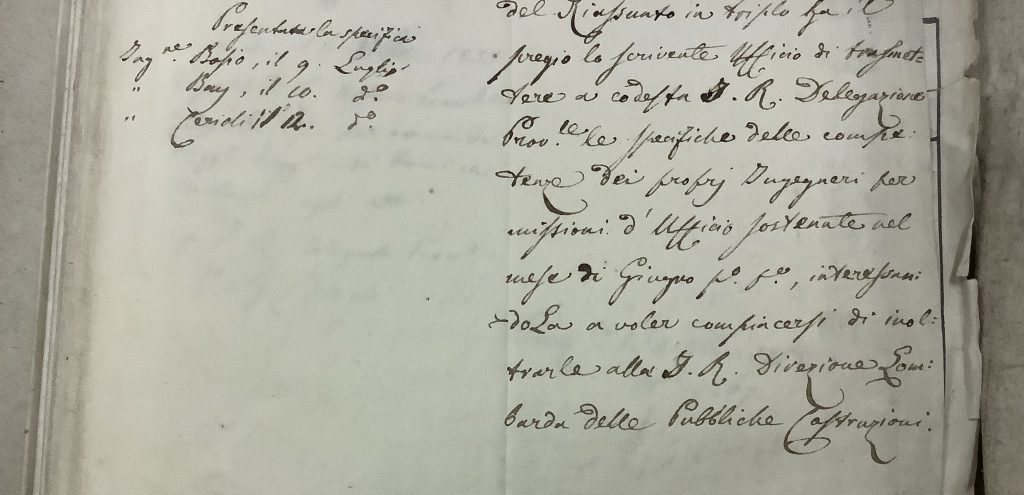 Presentata la specifica
Ing.ne Bosio, il 9. Luglio
" Bay, il 10. do.
" Cerioli il 12. do.
del Riassunto in triplo ha il
pregio lo scrivente Ufficio di trasmet=
tere a codesta I. R. Delegazione
Prov.le le specifiche delle compe=
tenze dei proprj Ingegneri per
missioni d'Ufficio sostenute nel
mese di Giugno p.o p.o, interessan=
doLa a voler compiacersi di inol=
trarle alla I. R. Direzione Lom=
barda delle Pubbliche Costruzioni.